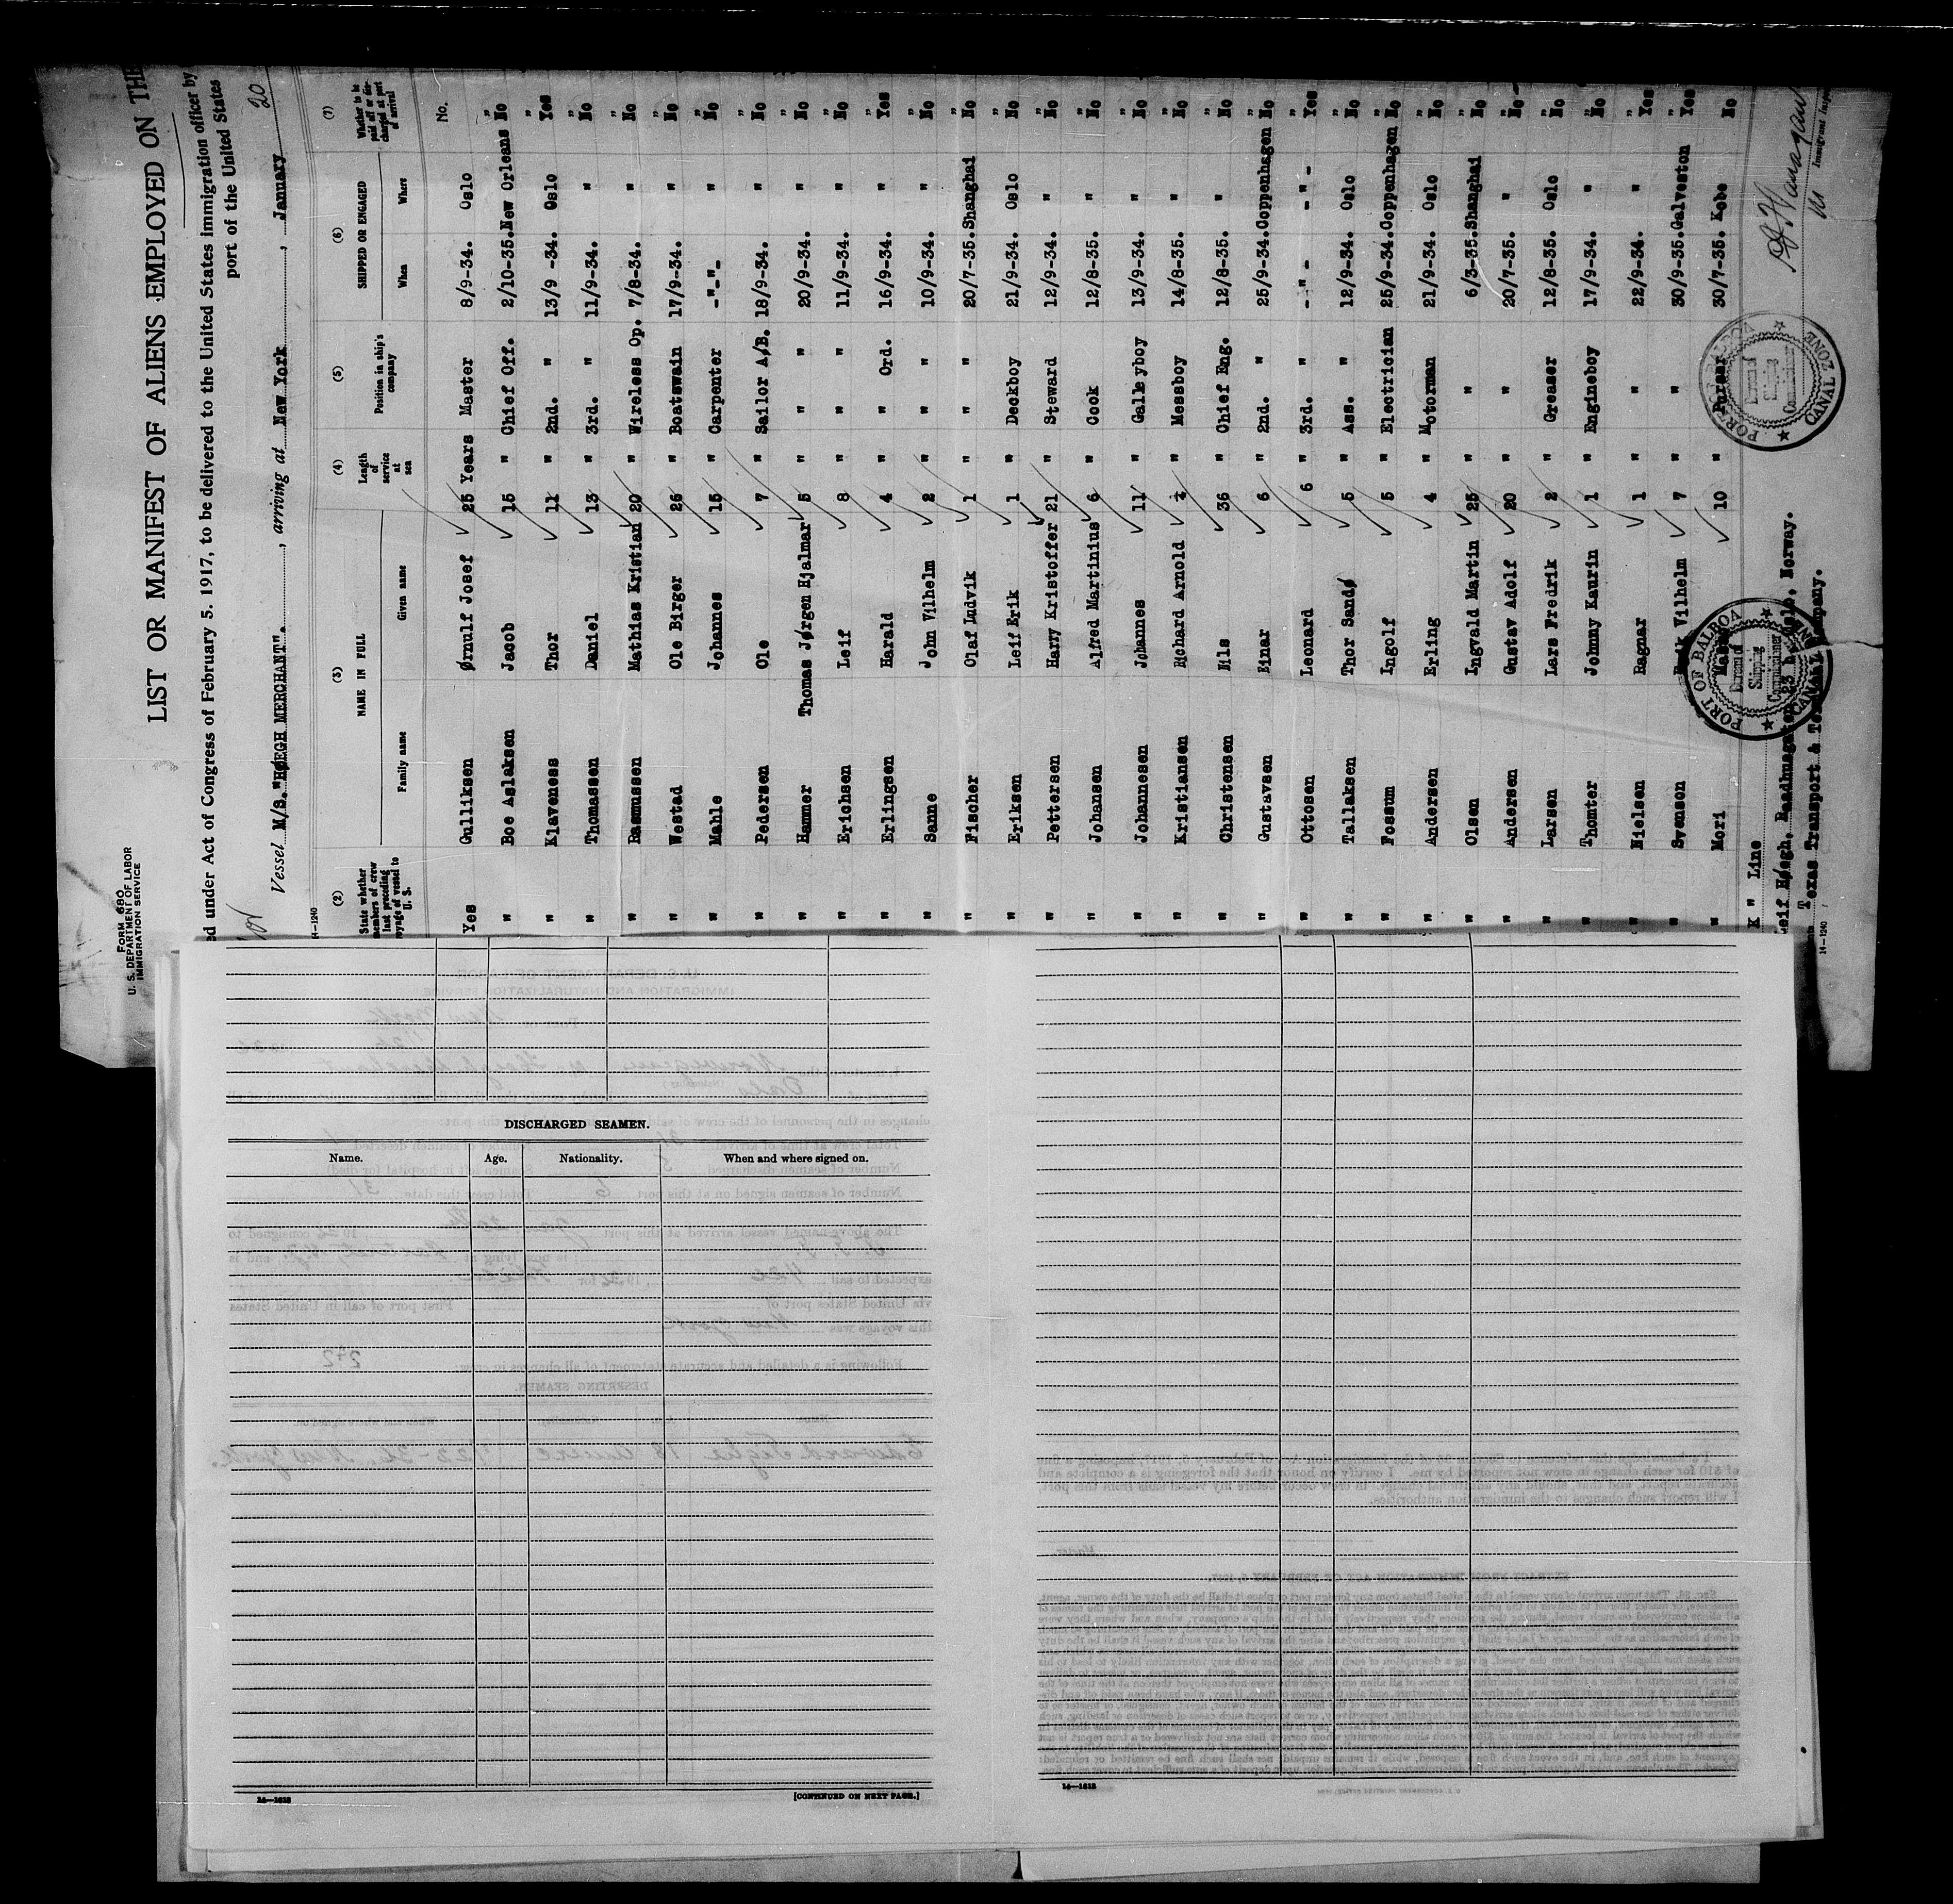 FORM 680
U. S. DEPARTMENT OF LABOR
IMMIGRATION SERVICE
LIST OR MANIFEST OF ALIENS EMPLOYED ON THE
ed under Act of Congress of February 5, 1917, to be delivered to the United States immigration officer by
port of the United States
Vessel M/S."HØEGH MERCHANT"., arriving at New York, January 20
14-1240
(2) (3) (4) (5) (6) (7)
State whether members of crew last preceding voyage of vessel to U. S.
NAME IN FULL
Family name Given name
Length of service at sea
Position in ship's company
SHIPPED OR ENGAGED
When Where
Whether to be paid off or discharged at port of arrival
No.
Yes Gulliksen Ørnulf Josef 25 Years Master 8/9-34. Oslo " No
" Boe Aslaksen Jacob 15 " Chief Off. 2/10-35. New Orleans " No
" Klaveness Thor 11 " 2nd. " 13/9 -34. Oslo " Yes
" Thomassen Daniel 13 " 3rd. " 11/9-34. " " No
" Rasmussen Mathias Kristian 20 " Wireless Op. 7/8-34. " " No
" Westad Ole Birger 26 " Boatswain 17/9-34. " " No
" Mahle Johannes 15 " Carpenter -"-"- " " No
" Pedersen Ole 7 " Sailor A/B. 18/9-34. " " No
" Hammer Thomas Jørgen Hjalmar 5 " " " 20/9-34. " " No
" Erichsen Leif 8 " " " 11/9-34. " " No
" Erlingsen Harald 4 " " Ord. 16/9-34. " " Yes
" Sanne John Vilhelm 2 " " " 10/9-34. " " No
" Fischer Olaf Ludvik 1 " " " 20/7-35. Shanghai " No
" Eriksen Leif Erik 1 " Deckboy 21/9-34. Oslo " No
" Pettersen Harry Kristoffer 21 " Steward 12/9-34. " " No
" Johansen Alfred Martinius 6 " Cook 12/8-35. " " No
" Johannesen Johannes 11 " Galleyboy 13/9-34. " " No
" Kristiansen Richard Arnold " Messboy 14/8-35. " " No
" Christensen Nils 36 " Chief Eng. 12/8-35. " " No
" Gustavsen Einar 6 " 2nd. " 25/9-34. Coppenhagen " No
" Ottosen Leonard 6 " 3rd. " - " - - " - " Yes
" Tallaksen Thor Sandø 5 " Ass. " 12/9-34. Oslo " No
" Fossum Ingolf 5 " Electrician 25/9-34. Coppenhagen " No
" Andersen Erling 4 " Motorman 21/9-34. Oslo " No
" Olsen Ingvald Martin 25 " " 6/3-35. Shanghai " No
" Andersen Gustav Adolf 20 " " 20/7-35. " " No
" Larsen Lars Fredrik 2 " Greaser 12/8-35. Oslo " No
" Thomter Johnny Kaurin 1 " Engineboy 17/9-34. " " No
" Nielsen Ragnar 1 " " 22/9-34. " " Yes
" Svenson Erik Vilhelm 7 " " 30/9-35. Galveston " Yes
" Mori 10 " Purser 30/7-35. Kobe No
K " Line
Leif Høegh, Raadhusgaten 23 Oslo, Norway.
Texas Transport & Terminal Company.
14-1240
Immigrant Inspector
PORT OF BALBOA
Bureau of
Shipping
Commissioner
CANAL ZONE
PORT OF BALBOA
Shipping
Commissioner
CANAL ZONE
DISCHARGED SEAMEN.
Name. Age. Nationality. When and where signed on.
14-1618
[CONTINUED ON NEXT PAGE.]
14-1618